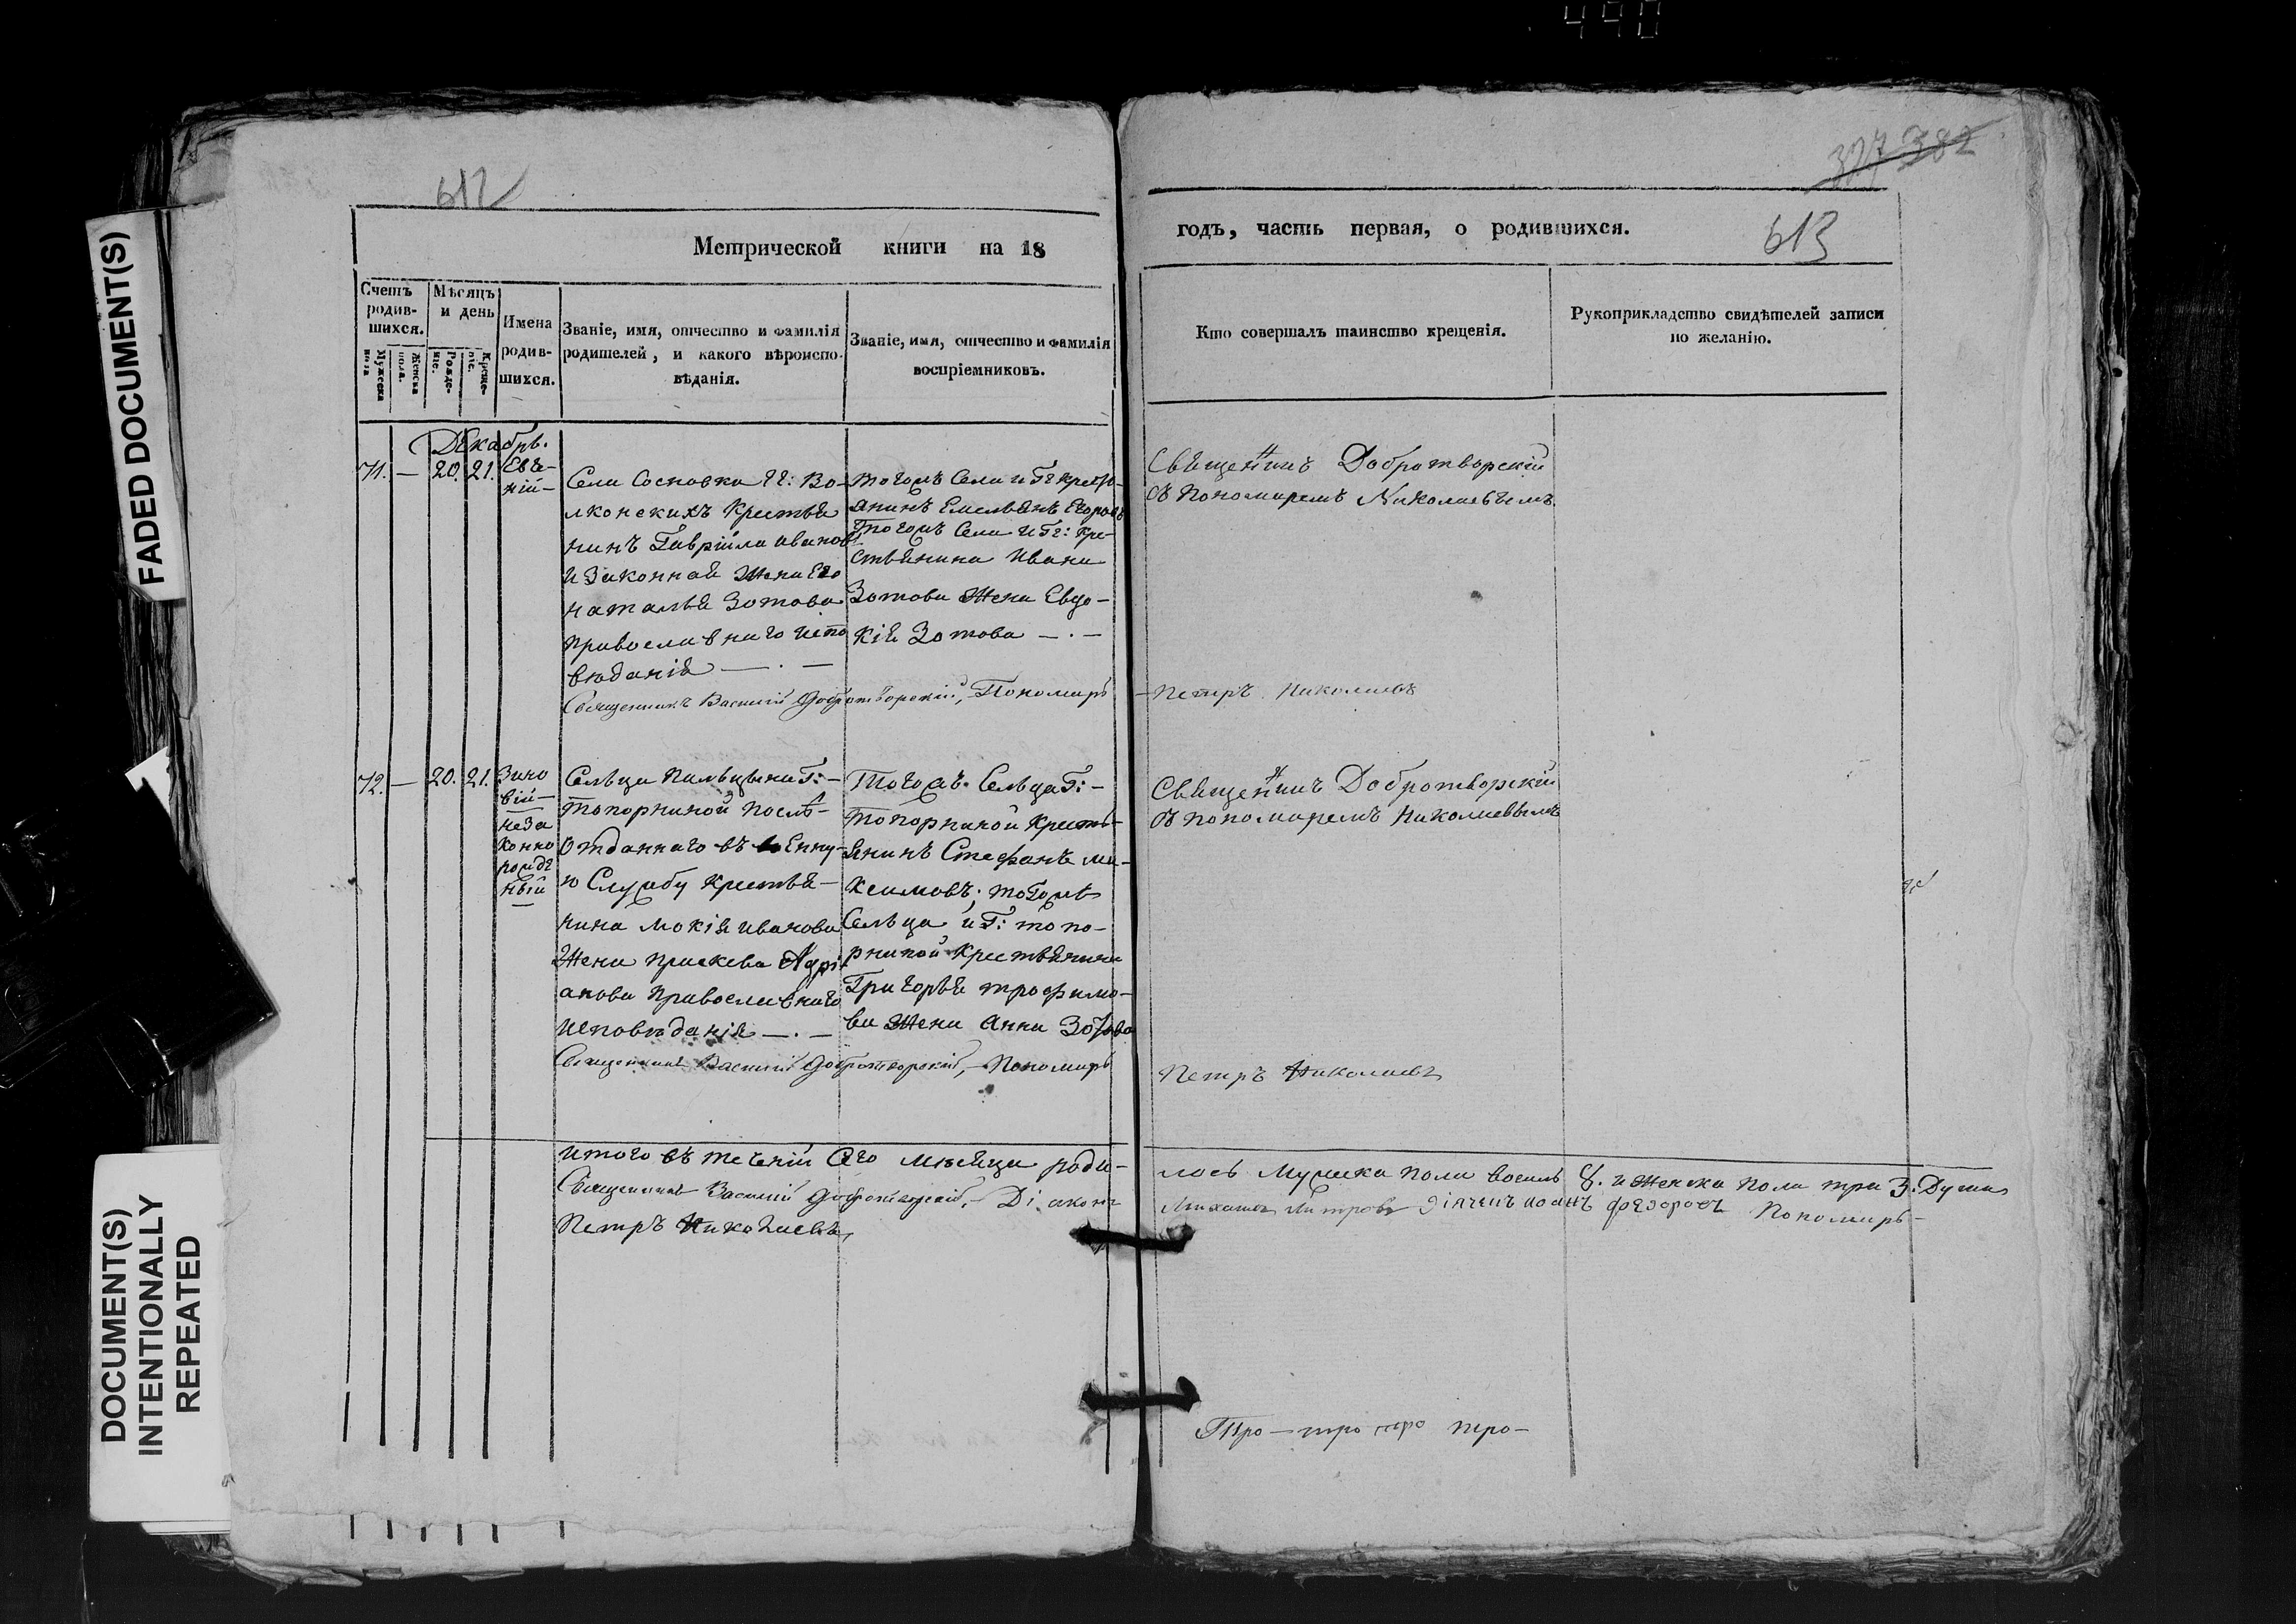 490
FADED DOCUMENT(S)
DOCUMENT(S)
INTENTIONALLY
REPEATED
612
Метрической книги на 18
Счетъ
родив-
шихся.
Мужеска
пола
Женска
пола.
Мѣсяцъ
и день
Рожде-
ніе.
Креще-
ніе.
Имена
родив-
шихся.
Званіе, имя, отчество и фамилія
родителей, и какого вѣроиспо-
вѣданія.
Званіе, имя, отчество и фамилія
воспріемниковъ.
Декабрь.
71. — 20. 21.
Евге-
ній —
Села Сосновки Гг: Во-
лконскихъ Крестья
нинъ Гаврійла Иванов
и Законной Жена Его
Наталья Зотова
православнаго испо
вѣданія — . —
Священникъ Василій Добротворскій, Пономарь
тогожъ Села и Гг Кресть-
янинъ Емельянъ Егоровъ
тогожъ Села и Гг: Кре-
стьянина Ивана
Зотова Жена Евдо-
кія Зотова — . —
72. — 20. 21.
Зино
вій —
неза
конно
рожде
ный
Сельца Пальцына Г: —
топорниной послѣ-
отданнаго въ военну-
ю Службу крестья-
нина Мокія Иванова
Жена Праскева Адрі
анова Православнаго
Исповѣданія — . —
Священникъ Василій Добротворскій, — Пономарь
Тогожъ Сельца Г: —
топорниной кресть-
янинъ Стефанъ Ма-
ксимовъ; тогожъ
Сельца и Г: топо-
рниной Крестьянина
Григорья трофимо-
ва Жена Анна Зотова
итого въ теченіи Сего мѣсяца роди-
Священникъ Василій Добротворскій, — Діаконъ
Петръ Николаевъ
327 382
613
годъ, часть первая, о родившихся.
Кто совершалъ таинство крещенія.
Рукоприкладство свидѣтелей записи
по желанію.
Священникъ Добротворскій
съ Пономаремъ Николаевымъ
Петръ Николаевъ
Священникъ Добротворскій
съ пономаремъ Николаевымъ
Петръ Николаевъ
лось Мужска пола восемь 8. и Женска пола три 3. Души
Дьячекъ Иоанъ Федоровъ Пономарь —
Тро — тро тро тро —